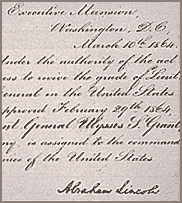 Executive Mansion,
Washington, D.C.
March 10th, 1864.
Under the authority of the act
ess to revive the grade of Lieut
eneral in the United States
pproved February 29th 1864,
nt General Ulysses S. Grant,
my is assigned to the command
mies of the United States
Abraham Lincoln